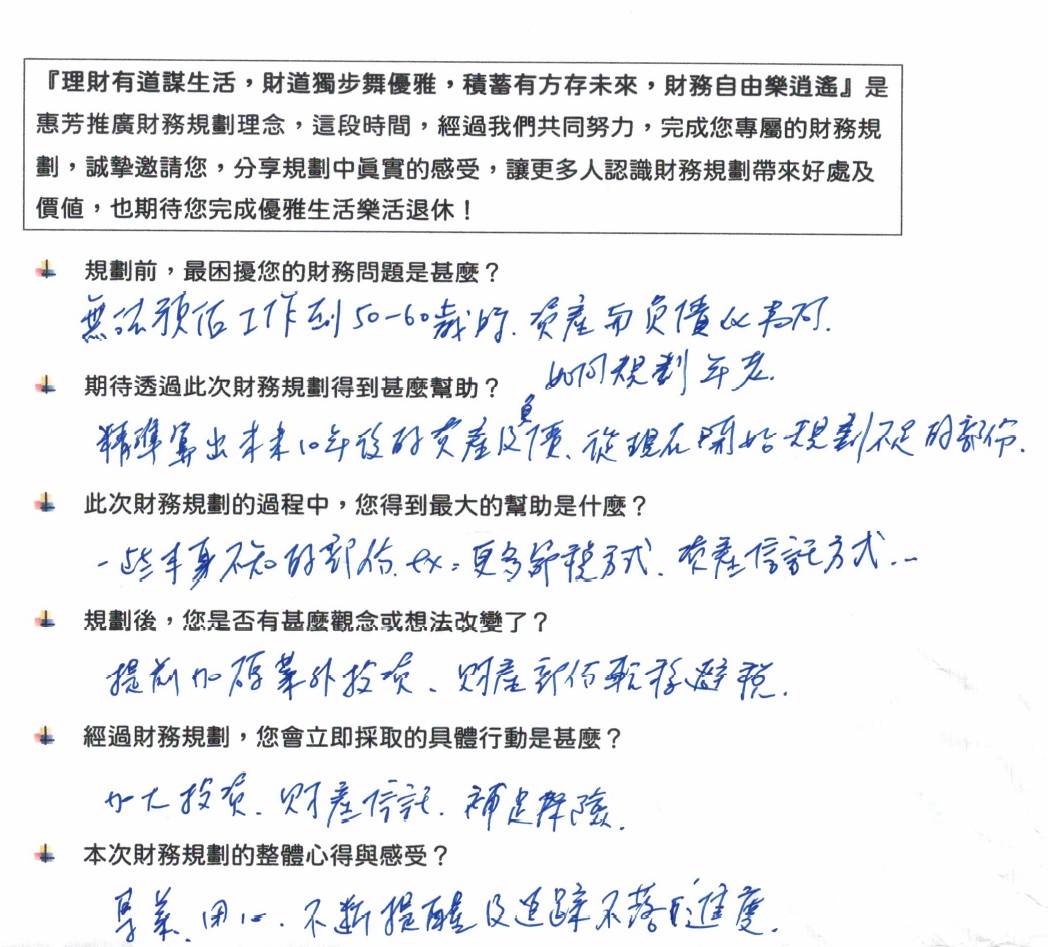 『理財有道謀生活，財道獨步舞優雅，積蓄有方存未來，財務自由樂逍遙』是
惠芳推廣財務規劃理念，這段時間，經過我們共同努力，完成您專屬的財務規
劃，誠摯邀請您，分享規劃中真實的感受，讓更多人認識財務規劃帶來好處及
價值，也期待您完成優雅生活樂活退休！
規劃前，最困擾您的財務問題是甚麼？
無法預估工作到50-60歲時、資產而負債為何.
如何規劃年老.
期待透過此次財務規劃得到甚麼幫助？
精準算出未來10年後的資產及負債、從現在開始規劃不足的部份.
此次財務規劃的過程中，您得到最大的幫助是什麼？
一些本身不知的部份. ex: 更多節稅方式、資產信託方式...
規劃後，您是否有甚麼觀念或想法改變了？
提前加碼業外投資、財產部份轉移避稅.
經過財務規劃，您會立即採取的具體行動是甚麼？
加大投資、財產信託、補足保險.
本次財務規劃的整體心得與感受？
專業、用心、不斷提醒及追蹤不落進度.